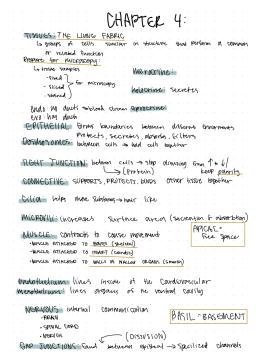 CHAPTER 4:
TISSUES: THE LIVING FABRIC
↳ groups of cells similar in structure that perform a common
or related function
Prepare for microscopy:
↳ tissue samples
- Sliced
- stained
for microscopy
Merocrine:
Holocrine: secretes
Endo: no ducts → blood stream
Apocrine:
exo: has duct
EPITHELIAL: forms boundaries between different environments
Protects, secretes, absorbs, filters
Desmosomes: between cells → hold cells together
TIGHT JUNCTION: between cells → stop from ↑ to ↓/
(Protein)
keep polarity
CONNECTIVE: SUPPORTS, PROTECT, BINDS other tissue together
Cilia: helps move substances → hair like
MICROVILLI: increases surface area (secretion & absorption)
APICAL = free space
MUSCLE: contracts to cause movement
- MUSCLE ATTACHED TO BONES (skeletal)
- MUSCLE ATTACHED TO HEART (cardiac)
- MUSCLE ATTACHED TO WALLS OF HOLLOW ORGANS (smooth)
endothelium: lines inside of the cardiovascular
mesothelium: lines organs of the ventral cavity
NERVOUS: internal communication
- BRAIN
- SPINAL CORD
- NERVES
BASIL = BASEMENT
(DIFFUSION)
GAP JUNCTIONS: found between epithelial → specialized channels